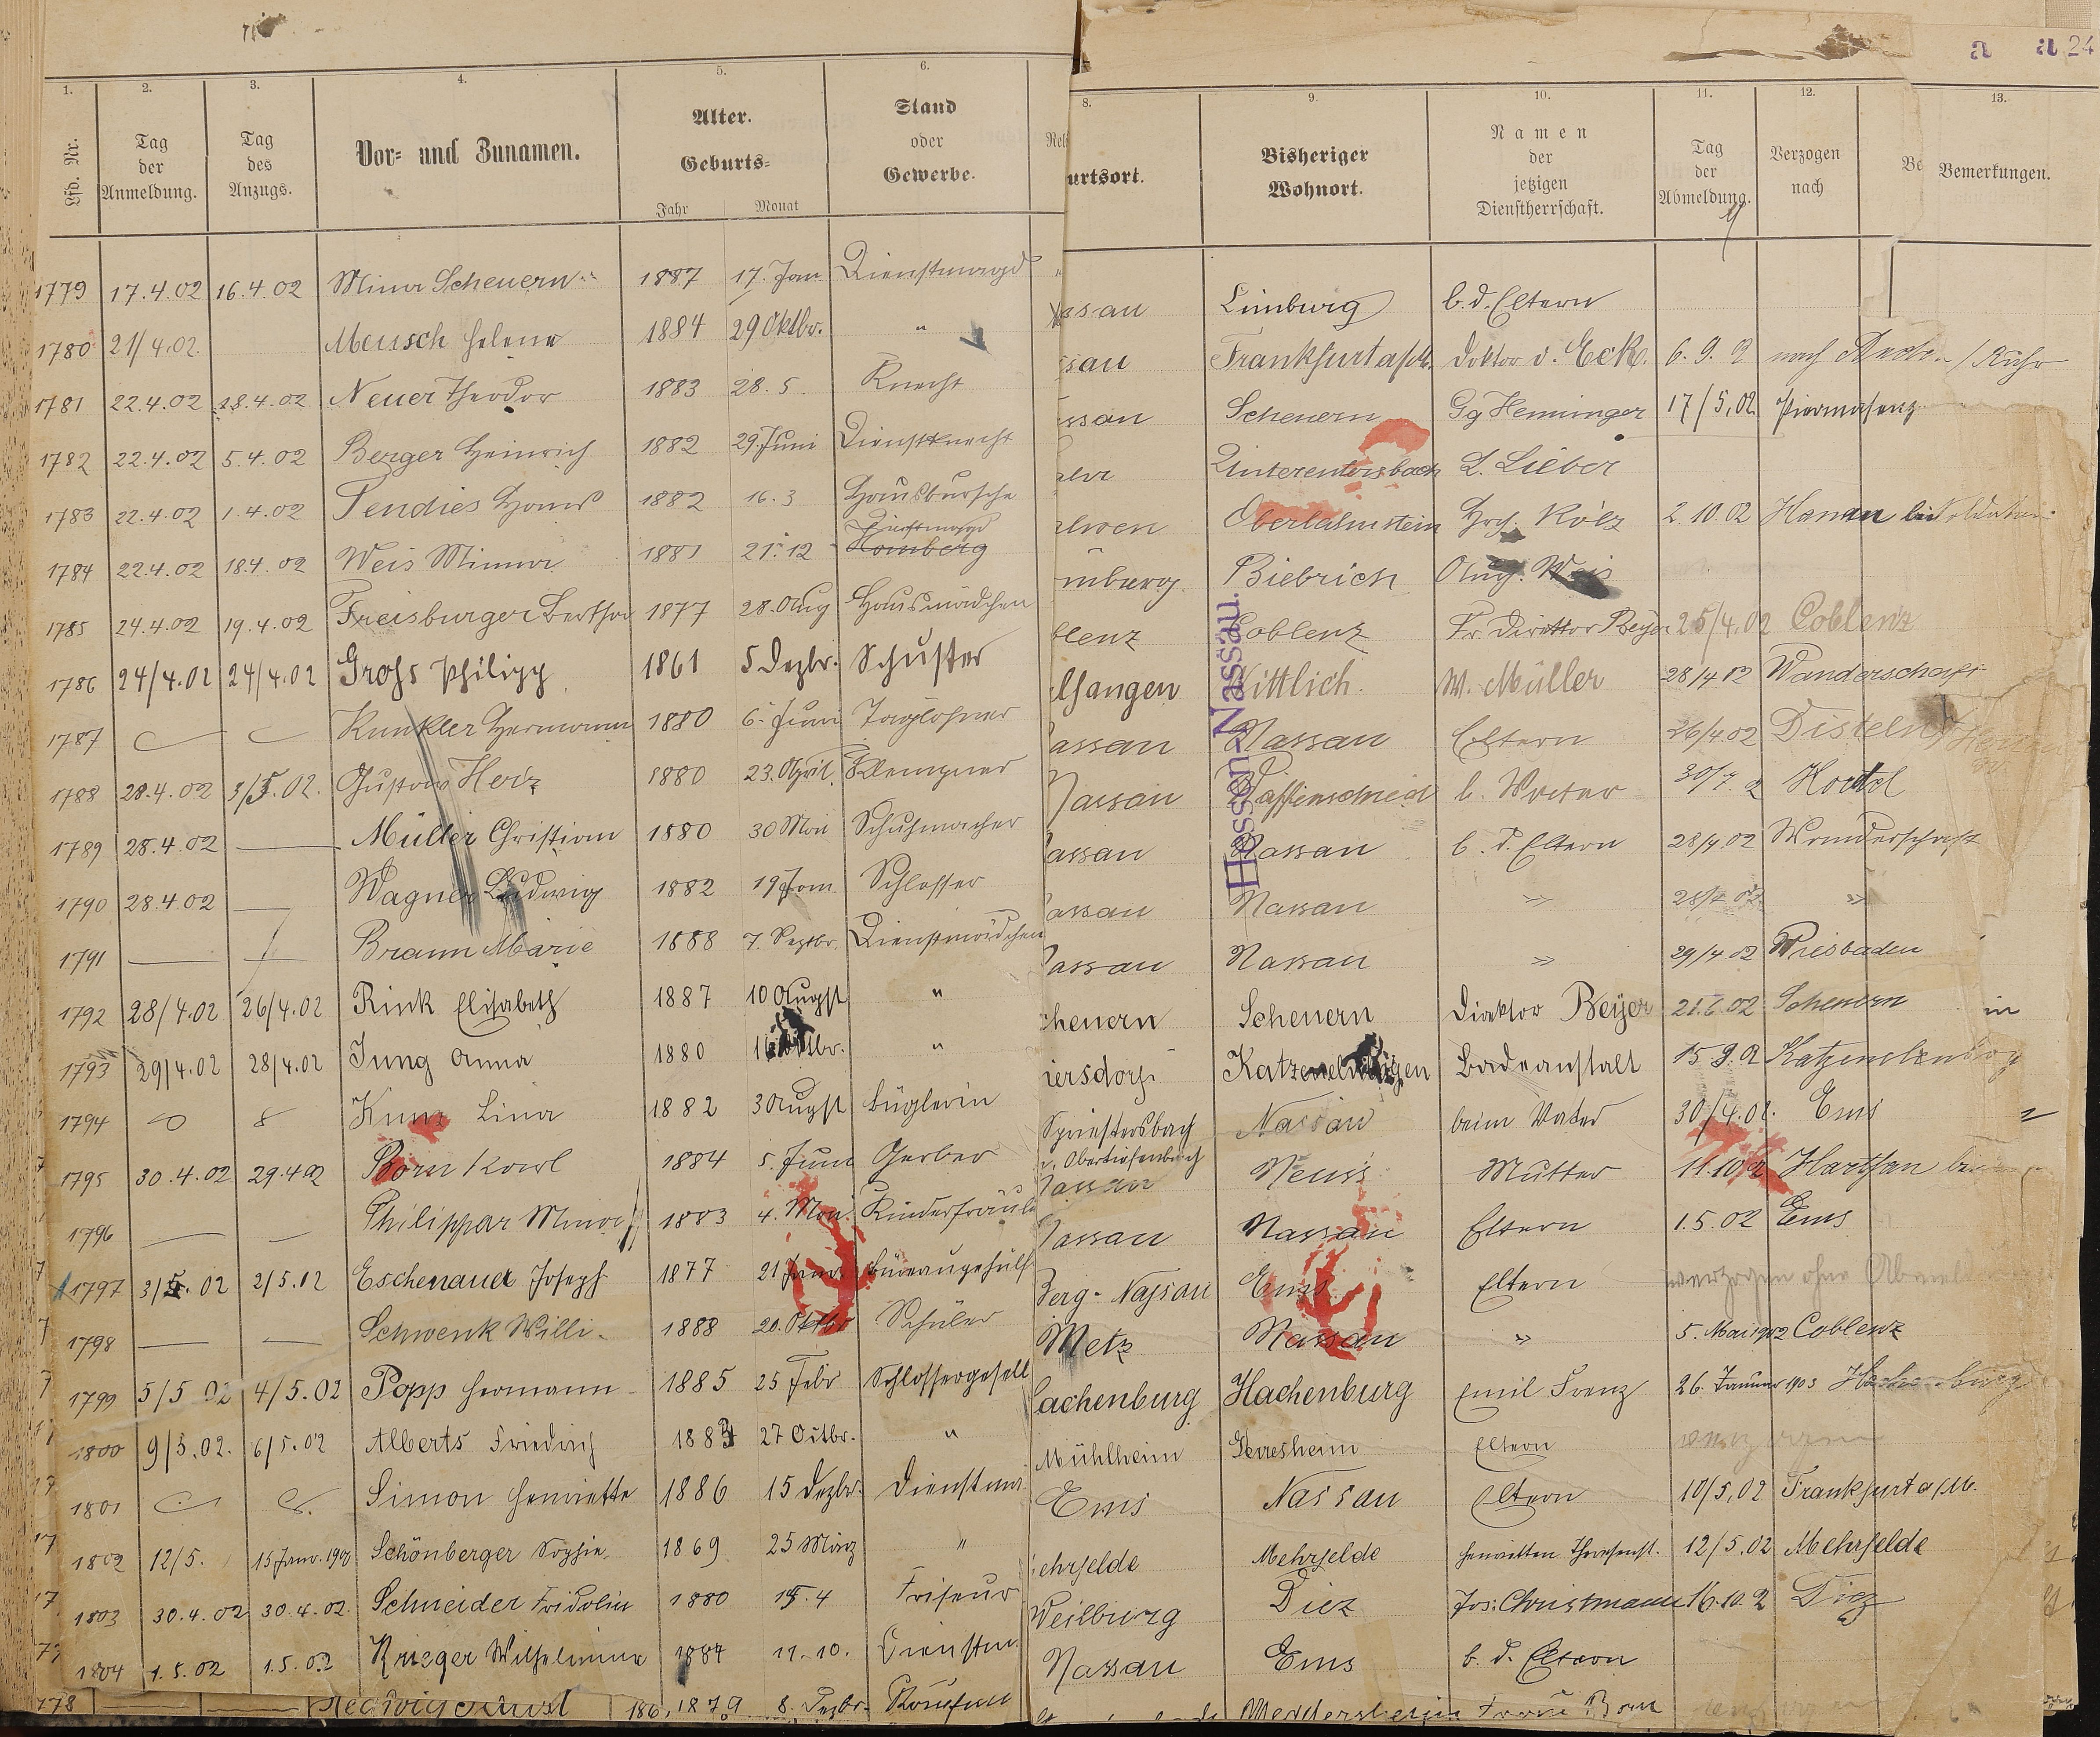 a a 24
1. 2. 3. 4. 5. 6. 8. 9. 10. 11. 12. 13.
Lfd. Nr. Tag der Anmeldung. Tag des Anzugs. Vor- und Zunamen. Alter. Geburts- Jahr Monat Stand oder Gewerbe. Rel urtsort. Bisheriger Wohnort. Namen der jetzigen Dienstherrschaft. Tag der Abmeldung. Verzogen nach Be Bemerkungen.
1779 17.4.02 16.4.02 Mina Scheuern 1887 17. Jan. Dienstmagd assau Limburg b. d. Eltern
1780 21/4.02. Meusch Helene 1884 29 Oktbr. " ssau Frankfurt a/M. Doktor v. Eck. 6. 9. 2 nach /Ruhr
1781 22.4.02 18.4.02 Neuer Theodor 1883 28. 5. Knecht ssau Scheuern Gg Heminger 17/5.02 Pirmasens
1782 22.4.02 5.4.02 Berger Heinrich 1882 29. Juni Dienstknecht L. Lieber
1783 22.4.02 1.4.02 Pendies Hans 1882 16. 3 Hausbursche Oberlahnstein Hch. Kölz 2.10.02 Hanau
1784 22.4.02 18.4.02 Weis Minna 1881 21. 12 Dienstmagd Homberg mburg Biebrich Aug. Weis
1785 24.4.02 19.4.02 Freisburger Bertha 1877 28. Aug Hausmädchen blenz Coblenz Fr. Direktor Beyer 25/4.02 Coblenz
1786 24/4.02 24/4.02 Grohs Philipp 1861 5 Dezbr. Schuster lfangen Wittlich. W. Müller 28/4.02 Wanderschaft
1787 Kunkler Hermann 1880 6. Juni Taglöhner assau Nassau Eltern 26/4.02 Disteln
1788 28.4.02 3/5.02. Gustav Herz 1880 23. April. Klempner Nassau b. Vater 30/7. 2
1789 28.4.02 Müller Christian 1880 30 Mai Schuhmacher assau Nassau b. d. Eltern 28/4.02 Wanderschaft
1790 28.4.02 Wagner Ludwig 1882 19 Jan. Schlosser assau Nassau " 28/4 02 "
1791 Braun Marie 1888 7. Septbr. Dienstmädchen assau Nassau " 29/4 02 Wiesbaden
1792 28/4.02 26/4.02 Rink Elisabeth 1887 10 Augst " heuern Scheuern Direktor Beyer 21.6.02 Scheuern in
1793 29/4.02 28/4.02 Jung Anna 1880 " iersdorf Katzenelnbogen Badeanstalt 15.9.02 Katzenelnbog
1794 Kunz Lina 1882 3 Augst Büglerin Nassau beim Vater 30/4.02. Ems
1795 30.4.02 29.4.02 Born Karl 1884 5. Juni Gerber Nassau Neuss Mutter 11.10.2
1796 Philippar Mina 1883 4. Mai Kinderfräul Nassau Nassau Eltern 1.5.02 Ems
1797 3/5.02 2/5.02 Eschenauer Joseph 1877 21 Janr. Büreaugehülf Berg-Nassau Ems Eltern verzogen ohne Abmel
1798 Schwenk Willi. 1888 20. Oktbr Schüler Metz Nassau " 5. Mai 1902 Coblenz
1799 5/5 02 4/5.02 Popp Hermann 1885 25 Febr Schlossergesell achenburg Hachenburg Emil Franz 26. Januar 1903 Hachenburg
1800 9/5.02. 6/5.02 Alberts Friedrich 1883 27 Octbr. " Mühlheim Gerresheim Eltern
1801 Simon Henriette 1886 15 Dezbr. Dienstm Ems Nassau Eltern 10/5.02 Frankfurt a/M.
1802 12/5. 15 Janr. Schönberger Sophie 1869 25 März " ehrfelde Mehrfelde Henrietten Theresenst. 12/5.02 Mehrfelde
1803 30.4.02 30.4.02 Schneider Fridolin 1880 15. 4 Friseur Weilburg Diez Jos: Christmann 16.10.2 Diez
1804 1.5.02 1.5.02 Krieger Wilhelmine 1884 11.10. Dienstm Nassau Ems b. d. Eltern
178 1879 8. Dezbr. Kaufm Frau Born
Hessen-Nassau.